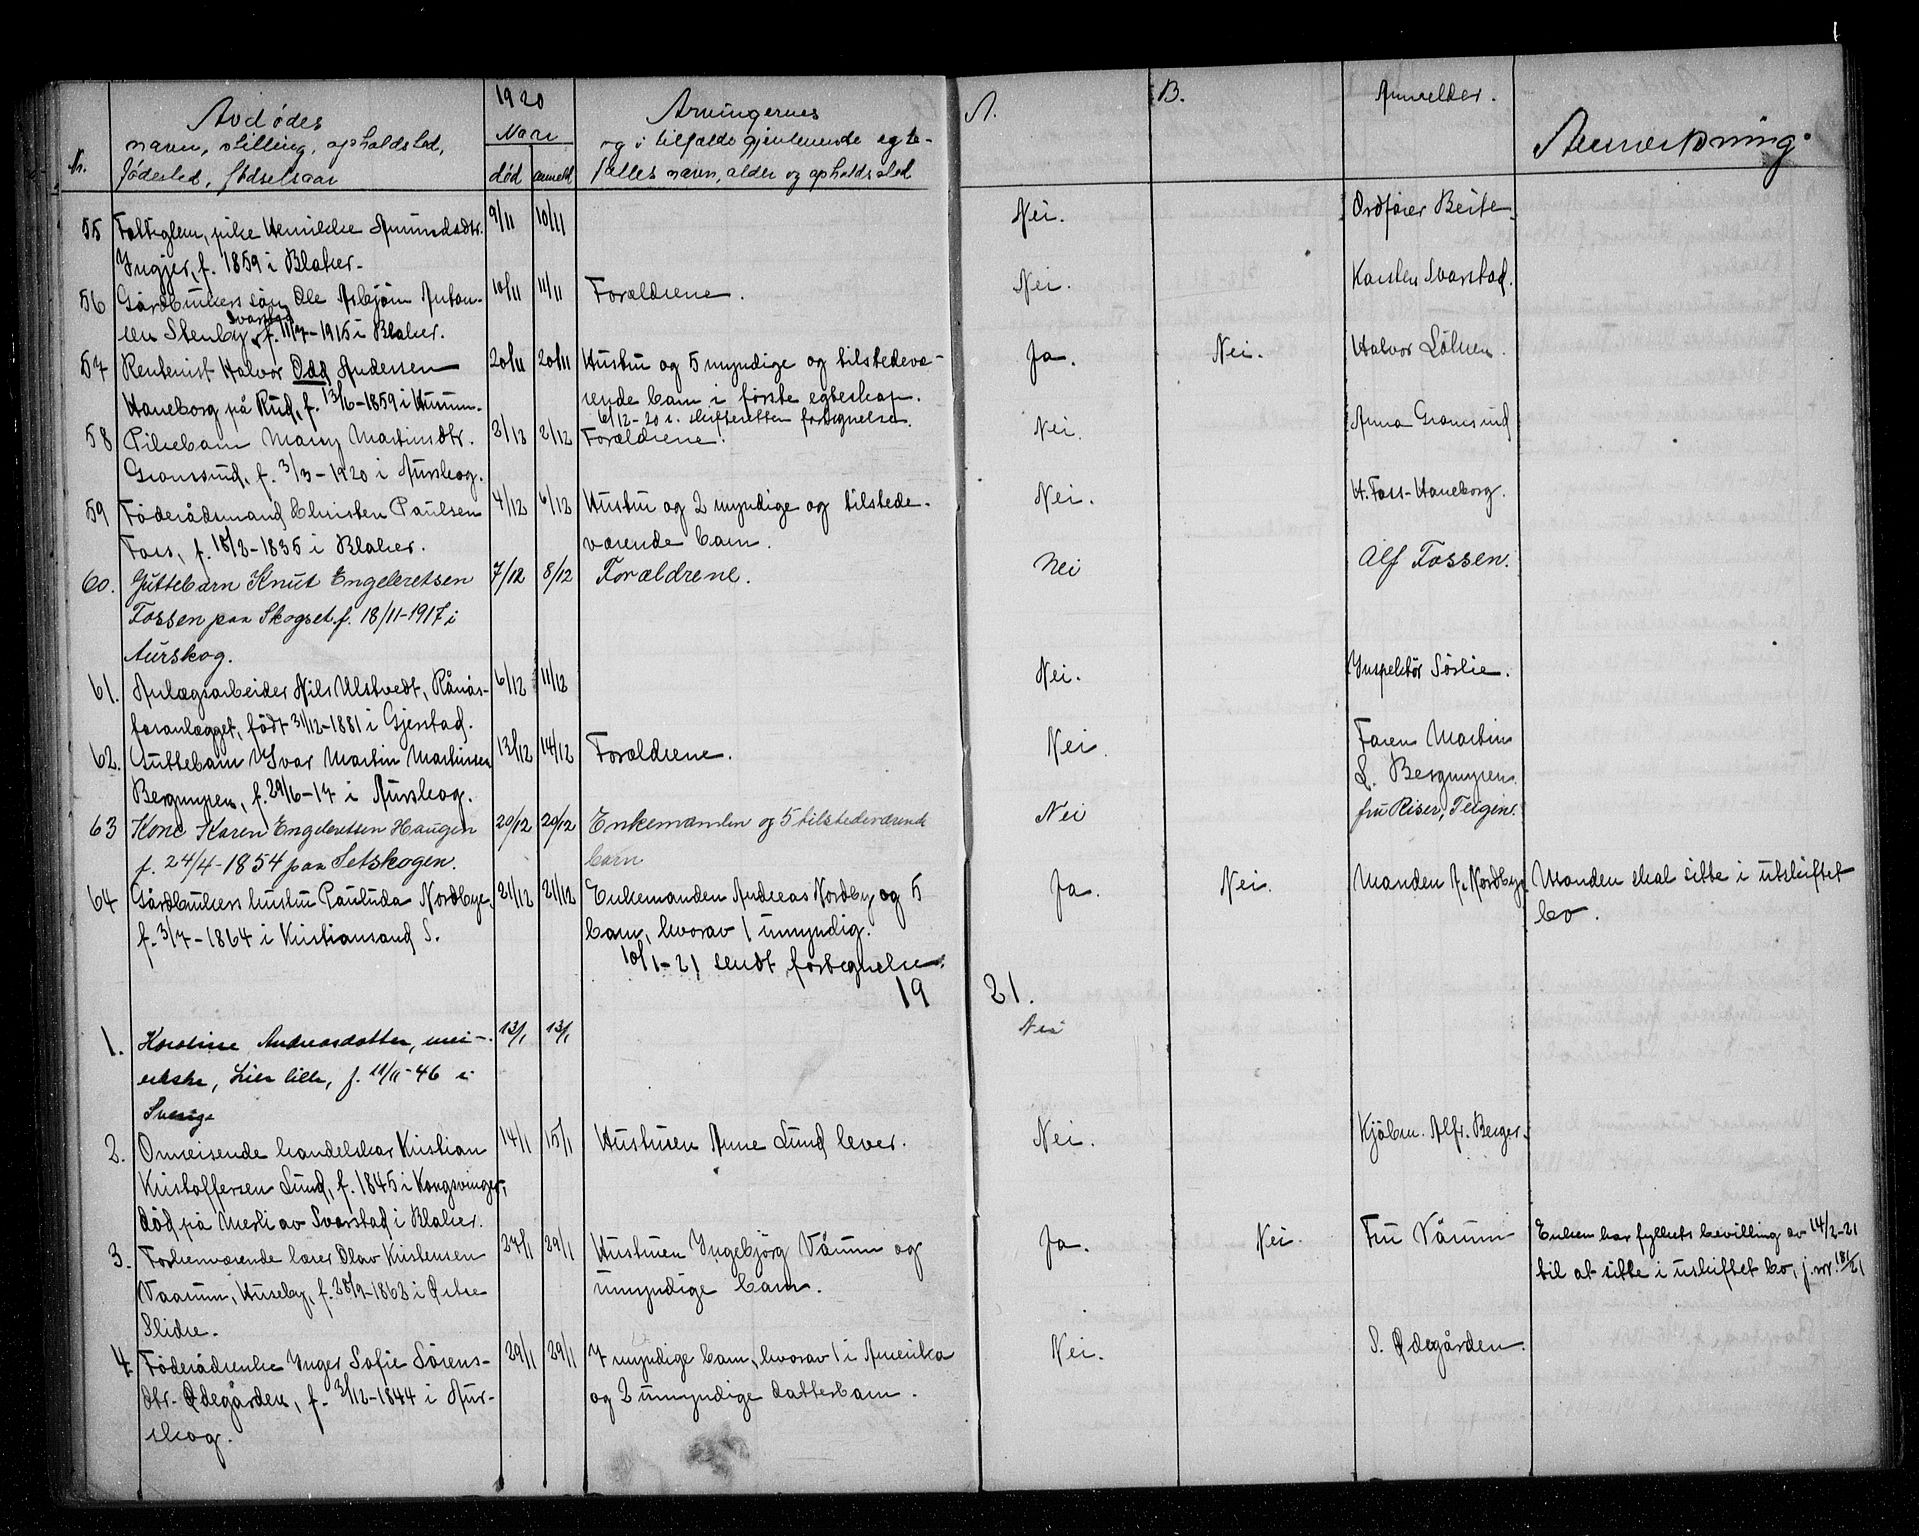 Nr. Avdødes navn, stilling, opholdsted, fødested, fødselsaar
1920 Naar død anmeldt
Arvingernes og i tilfælde gjenlevende egtefælles navn, alder og opholdssted
A. B. Anmelder. Anmerkning.
55 Fattiglem, pike Amundsdtr. 9/11 10/11 Nei. Ordfører Beite.
f. 1859 i Blaker.
56 Gårdbrukers søn Ole Asbjørn Anton- 10/11 11/11 Forældrene. Nei. Karsten Svarstad.
sen Stenby Svarstad, f. 11/7-1915 i Blaker.
57 Rentenist Halvor Odd Andersen 20/11 20/11 Hustru og 5 myndige og tilstedevæ- Ja. Nei. Halvor
Haneborg på Rud, f. 13/6-1859 i rende barn i første egteskap.
6/12-20 i skifteretten fortegnelse.
58 Pikebarn Mary Martinsdtr. 2/12 2/12 Forældrene. Nei. Anna Gransund
Gransund, f. 3/3-1920 i Aurskog.
59 Føderådsmand Christen Paulsen 4/12 6/12 Hustru og 2 myndige og tilstede- Nei. H. Foss-Haneborg.
Foss, f. 18/3-1835 i Blaker. værende barn.
60. Guttebarn Knut Engebretsen 7/12 8/12 Forældrene. Nei Alf Fossen.
Fossen paa Skogset f. 18/11-1917 i
Aurskog.
61. Anlægsarbeider Nils Ulstvedt, Rånås- 6/12 11/12 Nei. Inspektør Sørlie.
fosanlægget, født 31/12-1881 i Gjerstad.
62. Guttebarn Ivar Martin Martinsen 13/12 14/12 Forældrene. Nei. Faren Martin
Bergmyren, f. 29/6-17 i Aurskog. L. Bergmyren.
63 Kone Karen Engebretsen Haugen 20/12 20/12 Enkemanden og 5 tilstedeværende Nei fru Riser, Teigen.
f. 24/4-1854 paa Setskogen. barn
64 Gårdbrukers hustru Paulida Nordbye, 21/12 21/12 Enkemanden Andreas Nordby og 5 Ja. Nei. Manden A. Nordbye Manden skal sitte i uskiftet
f. 3/7-1864 i Kristiansand S. barn, hvorav 1 umyndig. bo.
10/1-21 sendt fortegnelse.
19 21.
1. Karoline Andreasdatter, mei- 13/1 13/1 Nei
erske, Lier lille, f. 11/11-46 i
Sverige
2. Omreisende handelskar Kristian 14/1 15/1 Hustruen Anne Lund lever. Nei. Kjøbm. Alfr. Berger.
Kristoffersen Lund, f. 1845 i Kongsvinger,
død på Merli av Svarstad i Blaker.
3. Forhenværende lærer Olav Kristensen 27/1 29/1 Hustruen Ingebjørg Vårum og Ja. Nei. Fru Vårum Enken har fylkets bevilling av 14/2-21
Vaarum, Huseby, f. 28/9-1863 i Østre umyndige barn. til at sitte i uskiftet bo, j.nr. 181/21
Slidre.
4 Føderådsenke Inger Sofie Sørens- 29/1 29/1 7 myndige barn, hvorav 1 i Amerika Nei. S. Ødegården.
dtr. Ødegården, f. 31/12-1844 i Aur- og 2 umyndige datterbarn.
skog.